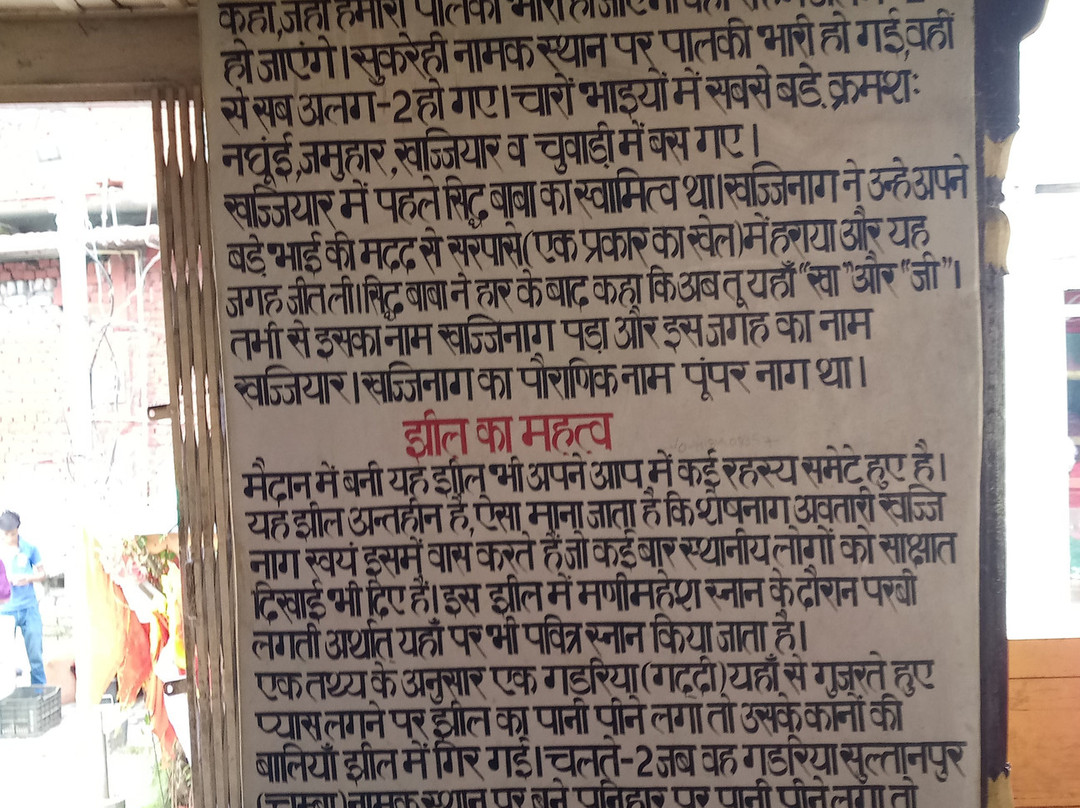 कहा,जहाँ हमारी पालकी भारी हो जाएगी वहीं
हो जाएंगे।सुकरेही नामक स्थान पर पालकी भारी हो गई,वहीं
से सब अलग-2 हो गए। चारों भाइयों में सबसे बडे. क्रमशः
नघूंई,जमुहार,खज्जियार व चुवाड़ी में बस गए।
खज्जियार में पहले सिद्ध बाबा का स्वामित्व था।खज्जिनाग ने उन्हे अपने
बड़े भाई की मदद से सरपासे(एक प्रकार का खेल)में हराया और यह
जगह जीत ली।सिद्ध बाबा ने हार के बाद कहा कि अब तू यहाँ "खा" और "जी"।
तभी से इसका नाम खज्जिनाग पड़ा और इस जगह का नाम
खज्जियार।खज्जिनाग का पौराणिक नाम पूंपर नाग था।
झील का महत्व
मैदान में बनी यह झील भी अपने आप में कई रहस्य समेटे हुए है।
यह झील अन्तहीन है, ऐसा माना जाता है कि शेषनाग अवतारी खज्जि
नाग स्वयं इसमें वास करते हैं जो कई बार स्थानीय लोगों को साक्षात
दिखाई भी दिए हैं। इस झील में मणीमहेश स्नान के दौरान परबी
लगती अर्थात् यहाँ पर भी पवित्र स्नान किया जाता है।
एक तथ्य के अनुसार एक गडरिया(गद्दी)यहाँ से गुजरते हुए
प्यास लगने पर झील का पानी पीने लगा तो उसके कानों की
बालियाँ झील में गिर गई। चलते-2 जब वह गडरिया सुल्तानपुर
(चम्बा)नामक स्थान पर बने पनिहार पर पानी पीने लगा तो